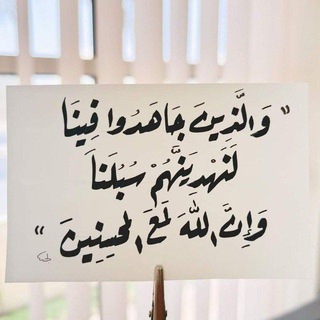 " وَالَّذِينَ جَاهَدُوا فِينَا
لَنَهْدِيَنَّهُمْ سُبُلَنَا
وَإِنَّ اللَّهَ لَمَعَ الْمُحْسِنِينَ "